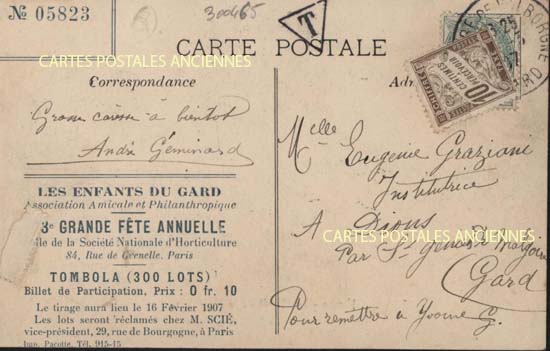 № 05823
300465
T
CARTE POSTALE
CARTES POSTALES ANCIENNES
Correspondance
à bientôt
André Géminard
LES ENFANTS DU GARD
Association Amicale et Philanthropique
3e GRANDE FÊTE ANNUELLE
de la Société Nationale d'Horticulture
84, Rue de Grenelle, Paris
TOMBOLA (300 LOTS)
Billet de Participation, Prix : 0 fr. 10
Le tirage aura lieu le 16 Février 1907
Les lots seront réclamés chez M. SCIÉ,
vice-président, 29, rue de Bourgogne, à Paris
Imp. Pacotte, Tél. 915-15
10
CENTIMES
À PERCEVOIR
Melle Eugénie Graziani
Institutrice
A Dions
CARTES POSTALES ANCIENNES
Par St
Gard
Pour remettre à Yvonne G.